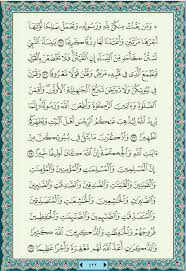 ۞ وَمَن يَقْنُتْ مِنكُنَّ لِلَّهِ وَرَسُولِهِۦ وَتَعْمَلْ صَٰلِحًا نُّؤْتِهَآ
أَجْرَهَا مَرَّتَيْنِ وَأَعْتَدْنَا لَهَا رِزْقًا كَرِيمًا ٣١ يَٰنِسَآءَ ٱلنَّبِىِّ
لَسْتُنَّ كَأَحَدٍ مِّنَ ٱلنِّسَآءِ إِنِ ٱتَّقَيْتُنَّ فَلَا تَخْضَعْنَ بِٱلْقَوْلِ
فَيَطْمَعَ ٱلَّذِى فِى قَلْبِهِۦ مَرَضٌ وَقُلْنَ قَوْلًا مَّعْرُوفًا ٣٢ وَقَرْنَ
فِى بُيُوتِكُنَّ وَلَا تَبَرَّجْنَ تَبَرُّجَ ٱلْجَٰهِلِيَّةِ ٱلْأُولَىٰ وَأَقِمْنَ
ٱلصَّلَوٰةَ وَءَاتِينَ ٱلزَّكَوٰةَ وَأَطِعْنَ ٱللَّهَ وَرَسُولَهُۥٓ إِنَّمَا
يُرِيدُ ٱللَّهُ لِيُذْهِبَ عَنكُمُ ٱلرِّجْسَ أَهْلَ ٱلْبَيْتِ وَيُطَهِّرَكُمْ
تَطْهِيرًا ٣٣ وَٱذْكُرْنَ مَا يُتْلَىٰ فِى بُيُوتِكُنَّ مِنْ
ءَايَٰتِ ٱللَّهِ وَٱلْحِكْمَةِ إِنَّ ٱللَّهَ كَانَ لَطِيفًا خَبِيرًا ٣٤
إِنَّ ٱلْمُسْلِمِينَ وَٱلْمُسْلِمَٰتِ وَٱلْمُؤْمِنِينَ وَٱلْمُؤْمِنَٰتِ
وَٱلْقَٰنِتِينَ وَٱلْقَٰنِتَٰتِ وَٱلصَّٰدِقِينَ وَٱلصَّٰدِقَٰتِ وَٱلصَّٰبِرِينَ
وَٱلصَّٰبِرَٰتِ وَٱلْخَٰشِعِينَ وَٱلْخَٰشِعَٰتِ وَٱلْمُتَصَدِّقِينَ
وَٱلْمُتَصَدِّقَٰتِ وَٱلصَّٰٓئِمِينَ وَٱلصَّٰٓئِمَٰتِ وَٱلْحَٰفِظِينَ
فُرُوجَهُمْ وَٱلْحَٰفِظَٰتِ وَٱلذَّٰكِرِينَ ٱللَّهَ كَثِيرًا
وَٱلذَّٰكِرَٰتِ أَعَدَّ ٱللَّهُ لَهُم مَّغْفِرَةً وَأَجْرًا عَظِيمًا ٣٥
٤٢٢